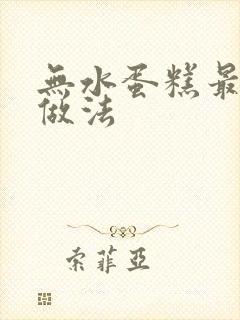 無水蛋糕最
做法
索菲亞